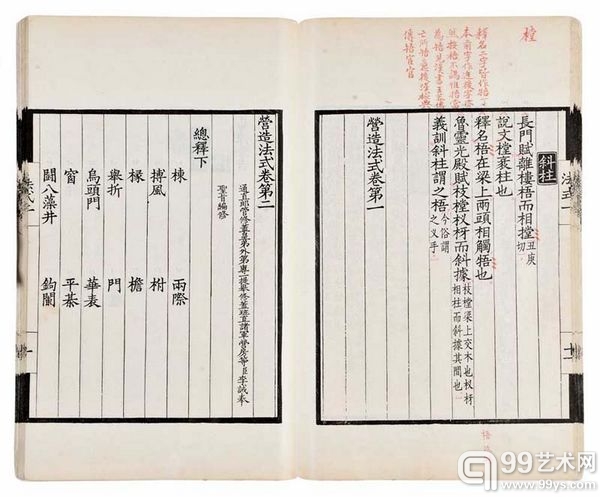 樘
法式一
斜柱
長門賦離樓梧而相樘丑庚切
說文樘衺柱也
釋名梧在梁上兩頭相觸牾也
魯靈光殿賦枝樘杈枒而斜據枝樘梁上交木也杈枒相柱而斜據其間也
義訓斜柱謂之梧今俗謂之叉手
營造法式卷第一
十一
營造法式卷第二
通直郎管修蓋皇弟外第專一提舉修蓋班直諸軍營房等臣李誡奉
聖旨編修
總釋下
棟 兩際
搏風 柎
椽 檐
舉折 門
烏頭門 華表
窗 平棊
鬭八藻井 鉤闌
99艺术网
www.99ys.com